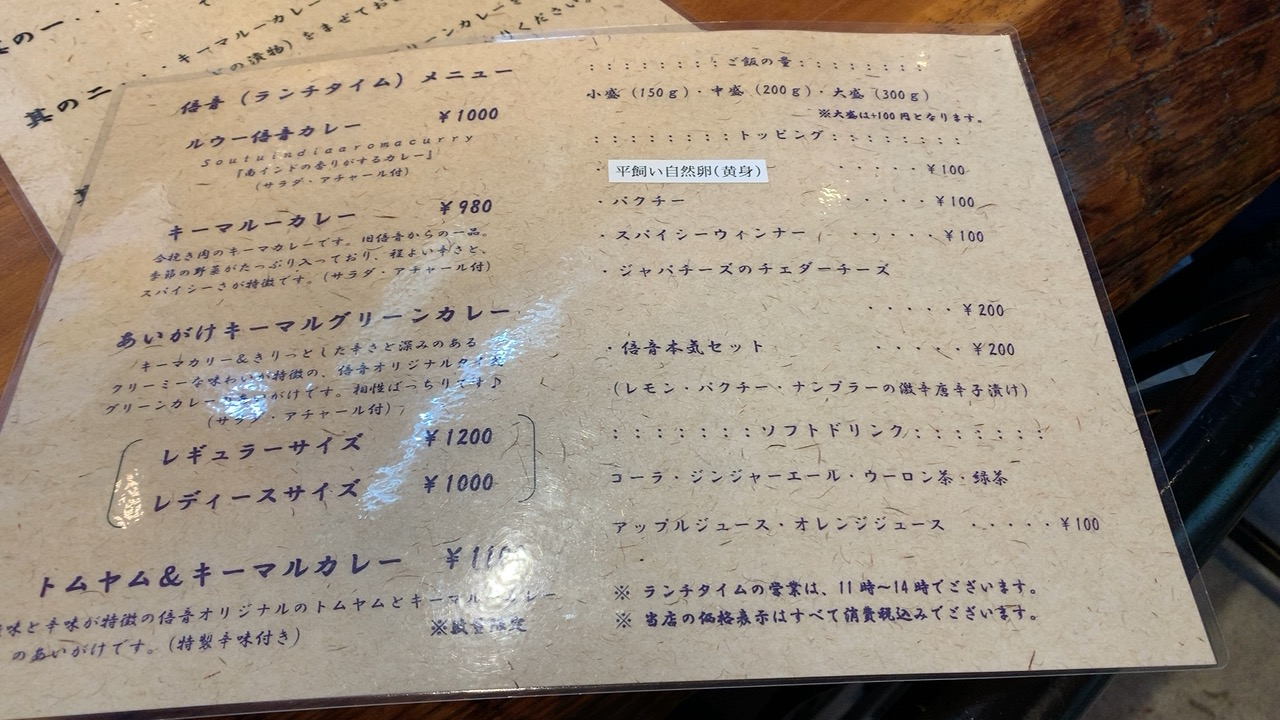 其の一・・・
キーマールーカレー
の漬物)をまぜてお
リーンカレーを
りください。
其の二・・・
倍音(ランチタイム)メニュー
ルウー倍音カレー ¥1000
Soutuindiaaromacurry
『南インドの香りがするカレー』
(サラダ・アチャール付)
キーマルーカレー ¥980
合挽き肉のキーマカレーです。旧倍音からの一品。
季節の野菜がたっぷり入っており、程よい辛さと、
スパイシーさが特徴です。(サラダ・アチャール付)
あいがけキーマルグリーンカレー
キーマカリー&きりっとした辛さと深みのある
クリーミーな味わいが特徴の、倍音オリジナル
グリーンカレー あいがけです。相性ばっちりです♪
(サラダ・アチャール付)
レギュラーサイズ ¥1200
レディースサイズ ¥1000
トムヤム&キーマルカレー ¥11
味と辛味が特徴の倍音オリジナルのトムヤムとキーマルーカレー
のあいがけです。(特製辛味付き) ※数量限定
:::::::ご飯の量:::::::
小盛(150g)・中盛(200g)・大盛(300g)
※大盛は+100円となります。
::::::::トッピング:::::::
平飼い自然卵(黄身) ・・・・¥100
・パクチー ・・・・・¥100
・スパイシーウィンナー ・・・・・・¥100
・ジャパチーズのチェダーチーズ
・・・・・¥200
・倍音本気セット ・・・・・¥200
(レモン・パクチー・ナンプラーの激辛唐辛子漬け)
:::::::ソフトドリンク:::::::
コーラ・ジンジャーエール・ウーロン茶・緑茶
アップルジュース・オレンジジュース ・・・・・¥100
※ ランチタイムの営業は、11時〜14時でございます。
※ 当店の価格表示はすべて消費税込みでございます。